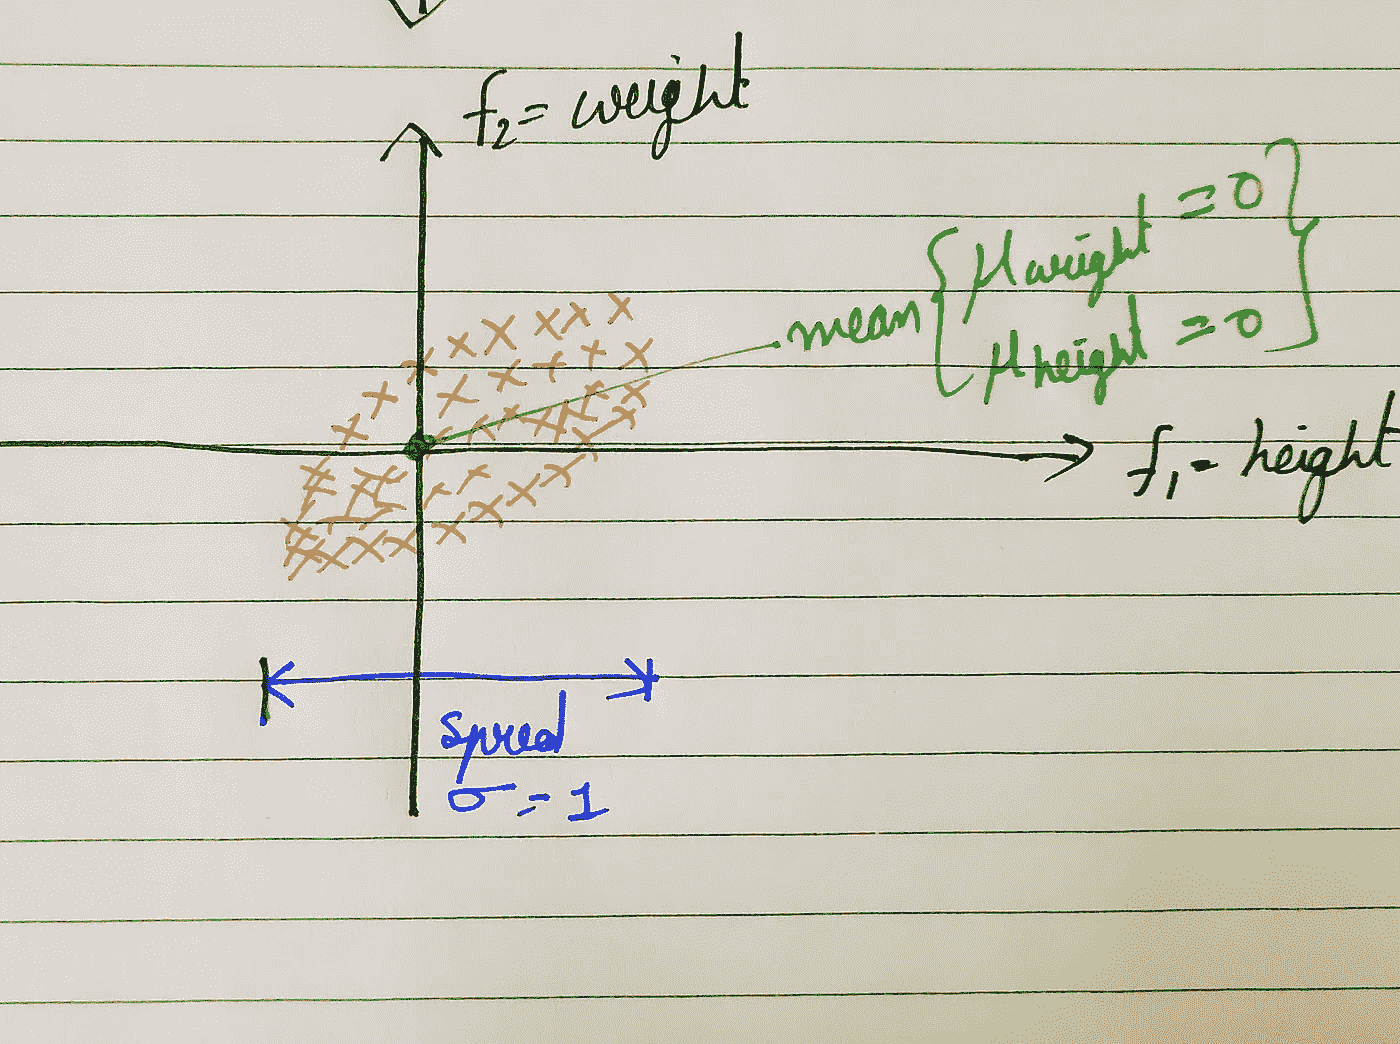 f₂ = weight
mean { μ weight = 0
μ height = 0 }
f₁ = height
spread
σ = 1